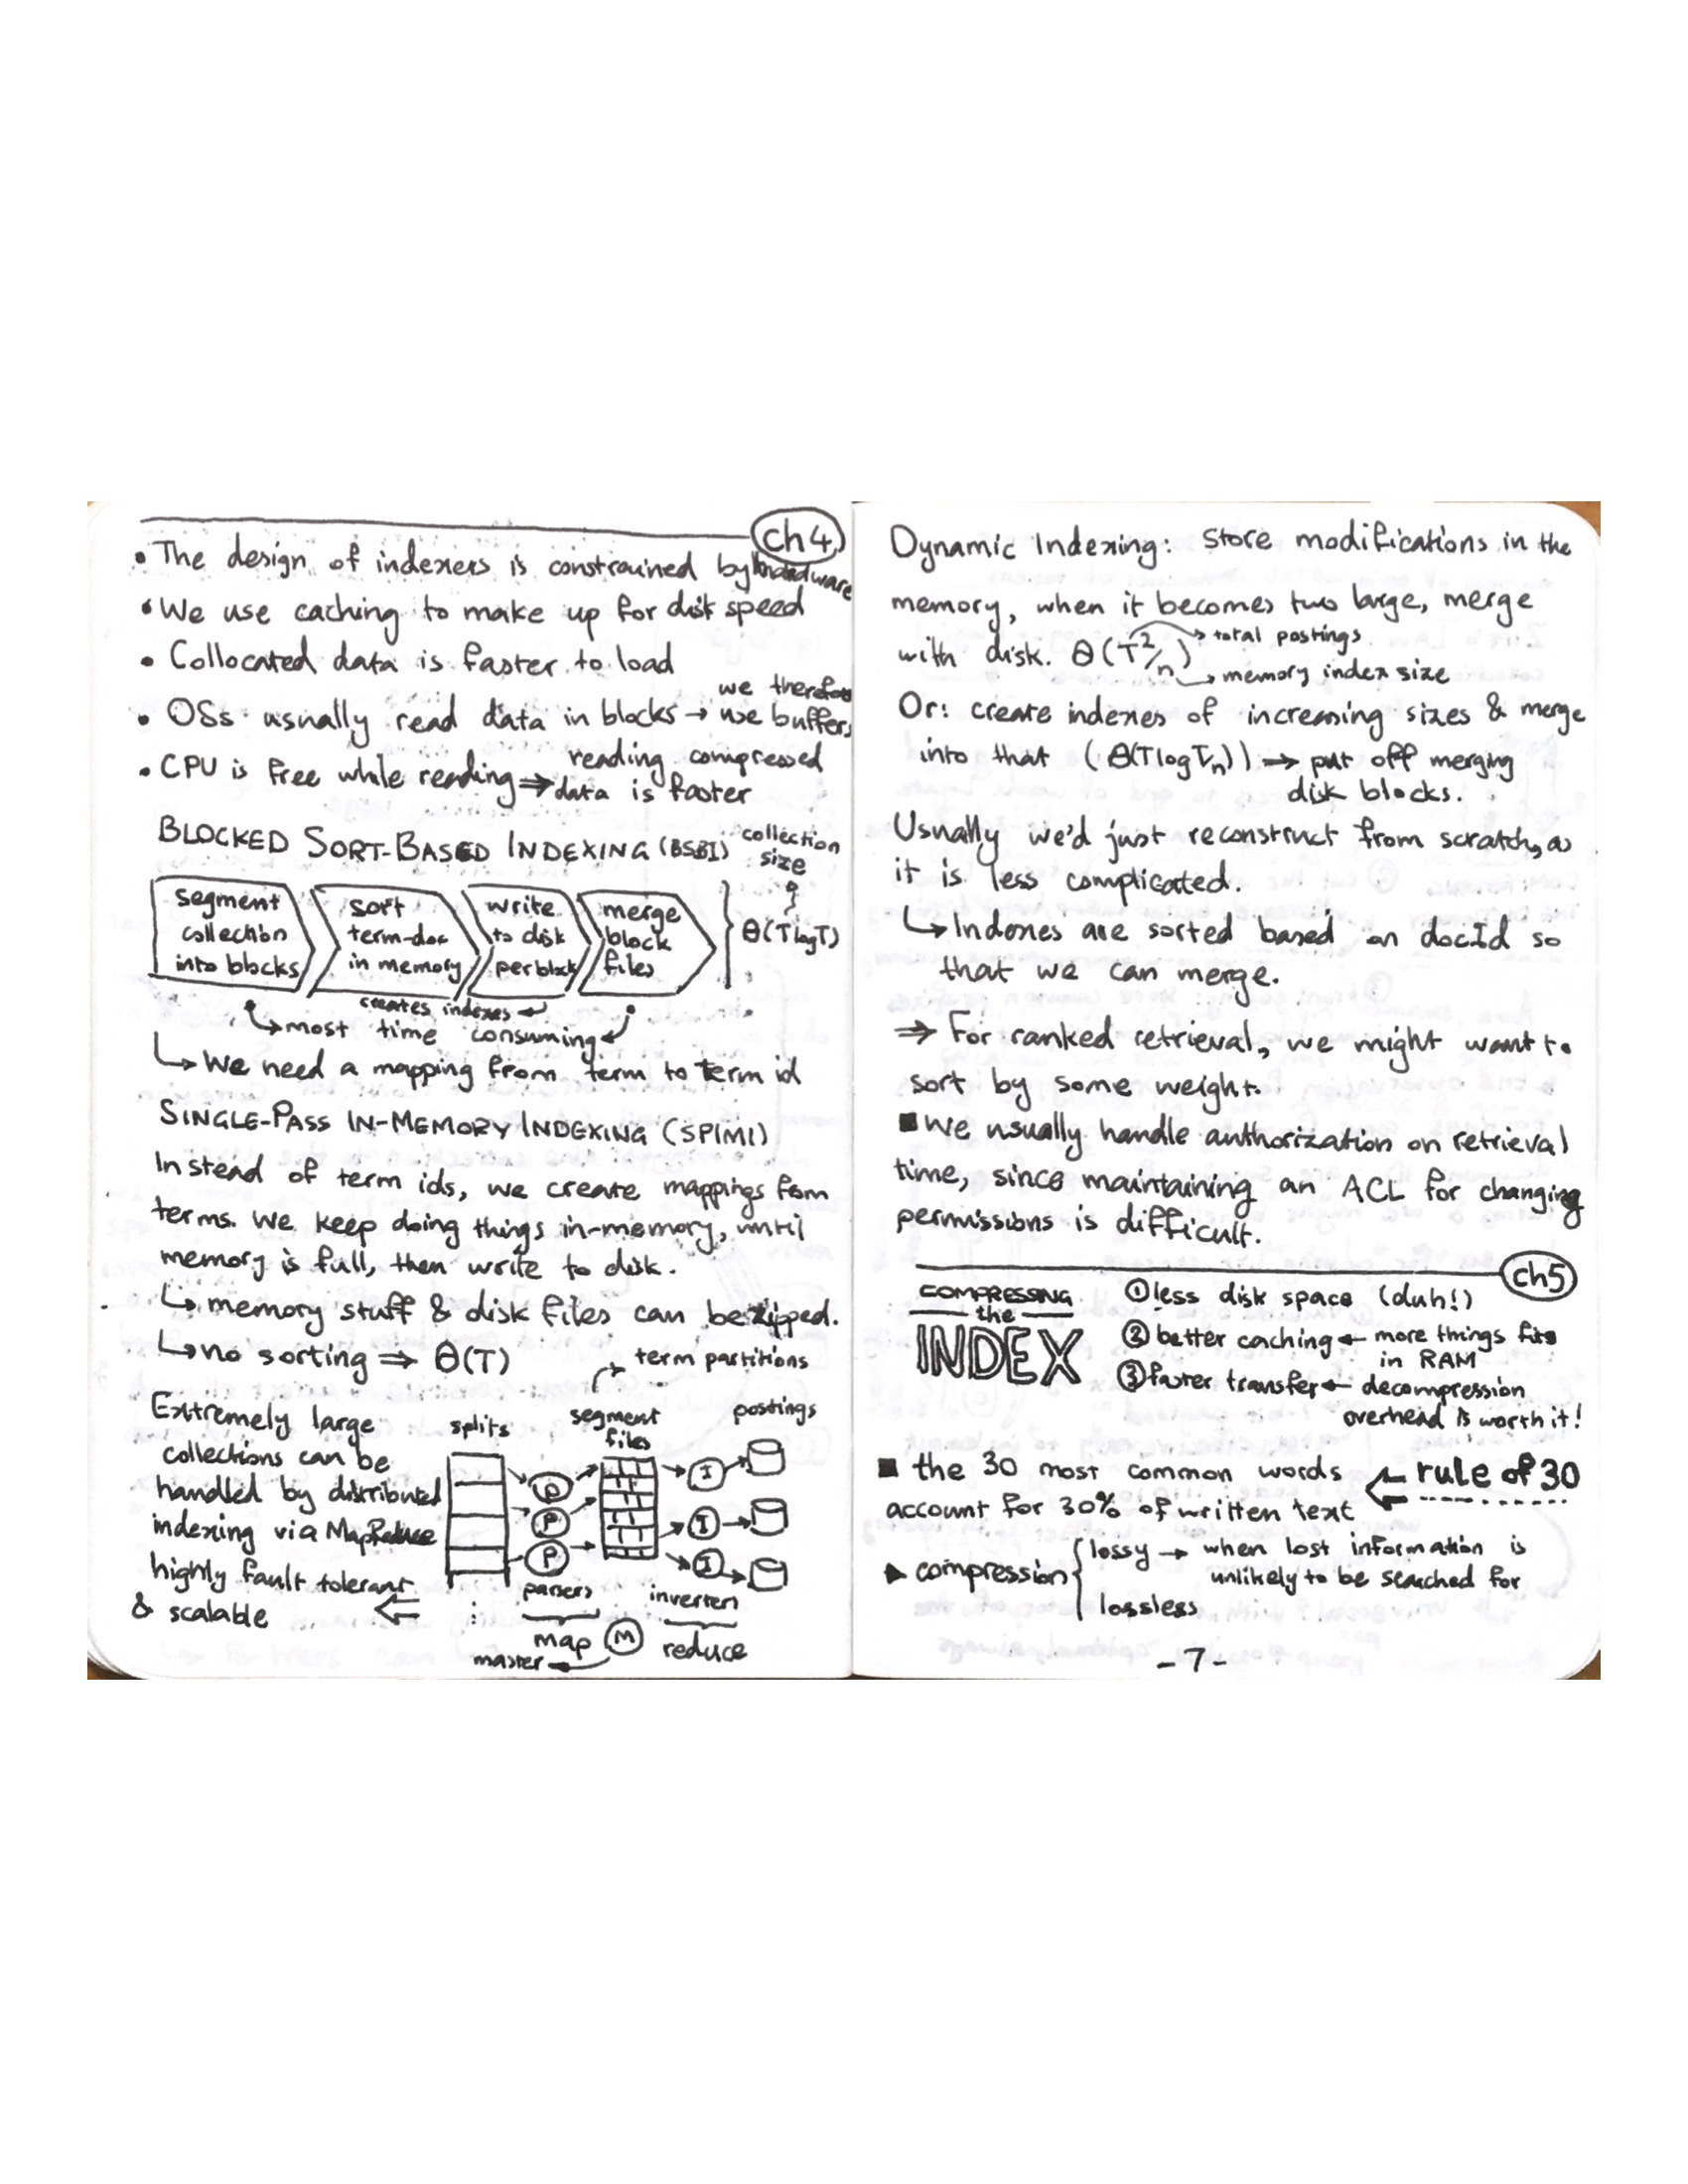 ch4
• The design of indexers is constrained by hardware
• We use caching to make up for disk speed
• Collocated data is faster to load
• OSs usually read data in blocks → we therefore use buffers
• CPU is free while reading ⇒ reading compressed data is faster
BLOCKED SORT-BASED INDEXING (BSBI)
collection
size
segment
collection
into blocks
sort
term-doc
in memory
write
to disk
per block
merge
block
files
θ(TlogT)
creates indexes
most time consuming
↳ We need a mapping from term to term id
SINGLE-PASS IN-MEMORY INDEXING (SPIMI)
Instead of term ids, we create mappings from
terms. We keep doing things in-memory, until
memory is full, then write to disk.
↳ memory stuff & disk files can be zipped.
↳ no sorting ⇒ θ(T)
Extremely large
collections can be
handled by distributed
indexing via MapReduce
highly fault tolerant
& scalable
term partitions
splits
segment
files
postings
P
P
P
I
I
I
parsers
inverters
map
M
reduce
master
Dynamic Indexing: Store modifications in the
memory, when it becomes two large, merge
with disk. θ(T²/n)
→ total postings
→ memory index size
Or: create indexes of increasing sizes & merge
into that (θ(TlogT/n)) → put off merging
disk blocks.
Usually we'd just reconstruct from scratch, as
it is less complicated.
↳ Indexes are sorted based on docId so
that we can merge.
⇒ For ranked retrieval, we might want to
sort by some weight.
■ We usually handle authorization on retrieval
time, since maintaining an ACL for changing
permissions is difficult.
ch5
COMPRESSING
the
INDEX
① less disk space (duh!)
② better caching ← more things fits
in RAM
③ faster transfer ← decompression
overhead is worth it!
■ the 30 most common words
account for 30% of written text
← rule of 30
▶ compression
lossy → when lost information is
unlikely to be searched for
lossless
- 7 -